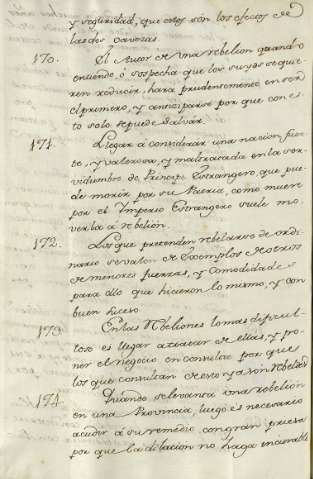 y seguridad, que estos son los efectos de
las dos cavezas.
170. El Autor de una rebelion quando
entiende, ó sospecha que los suyos se quie
ren reducir, hará prudentemente en ser
el primero, y anticiparse por que con es
to solo se puede salvar.
171. Llegar á considerar una nacion fuer
te, y valerosa, y maltratada en la ser
vidumbre de Principe Estrangero, que pue
de morir por su Patria, como muere
por el Imperio Estrangero suele mo
verla á rebelion.
172. Los que pretenden rebelarse de ordi
nario se valen de Exemplos de otros
de menores fuerzas, y comodidades
para ello que hicieron lo mismo, y con
buen suceso.
173. En las Rebeliones lo mas dificul
toso es llegar á tratar de ellas, y po
ner el negocio en consulta por que
los que consultan de esto ya son rebeldes
174. Quando se levanta una rebelion
en una Provincia, luego es necesario
acudir á su remedio con gran priesa
por que la dilacion no haga incurable